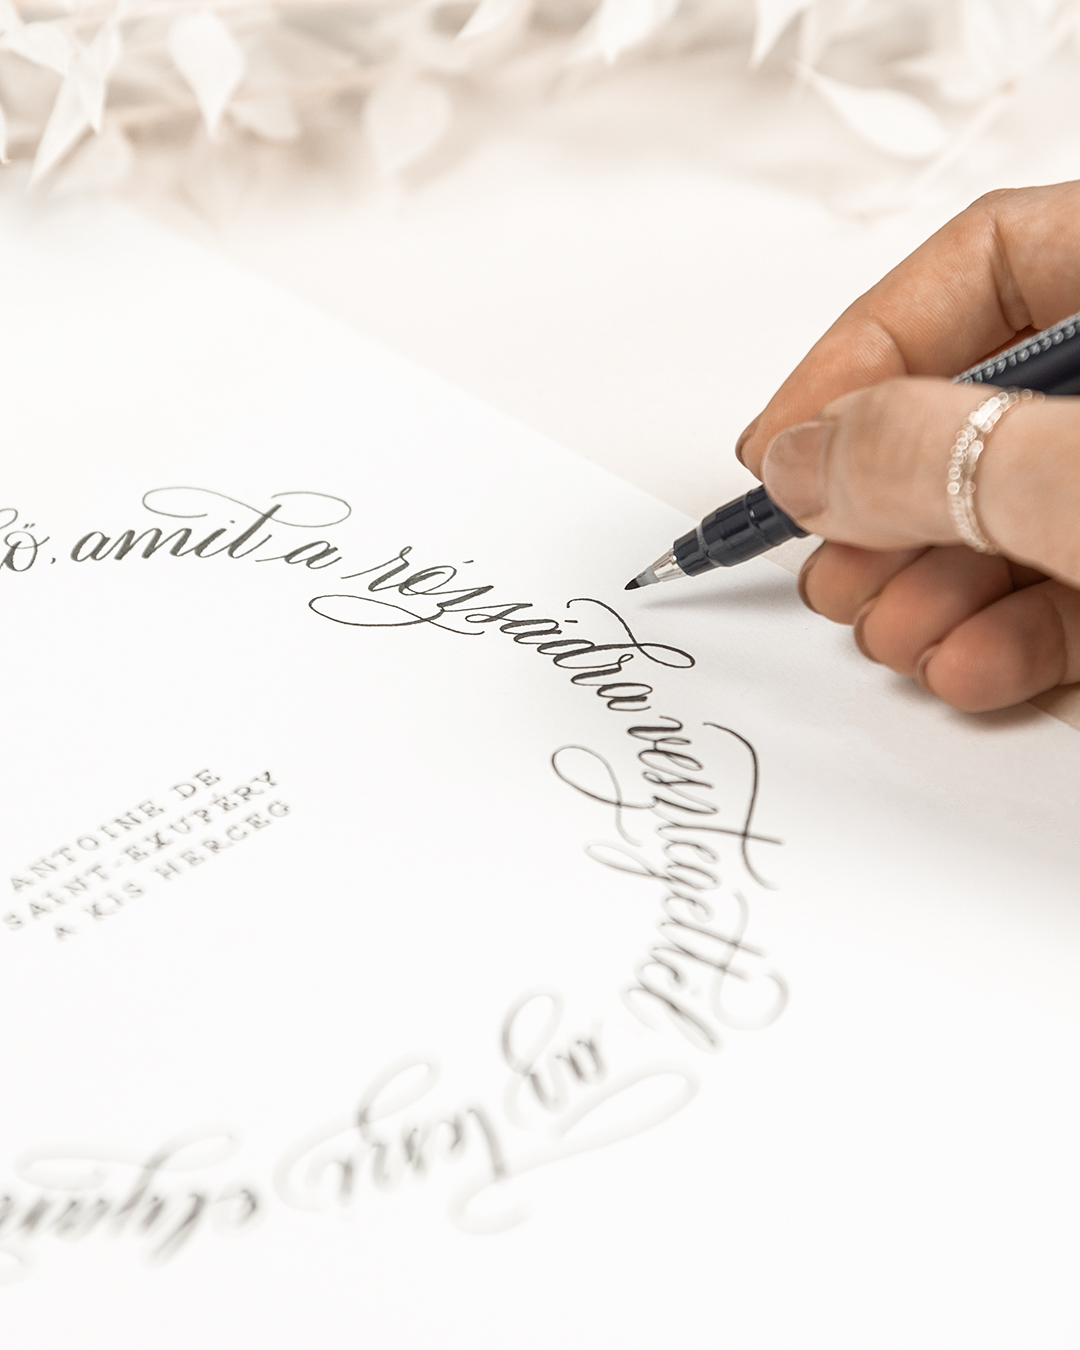 ő, amit a rózsádra vesztegettél, az teszi olyan
ANTOINE DE
SAINT-EXUPÉRY
A KIS HERCEG